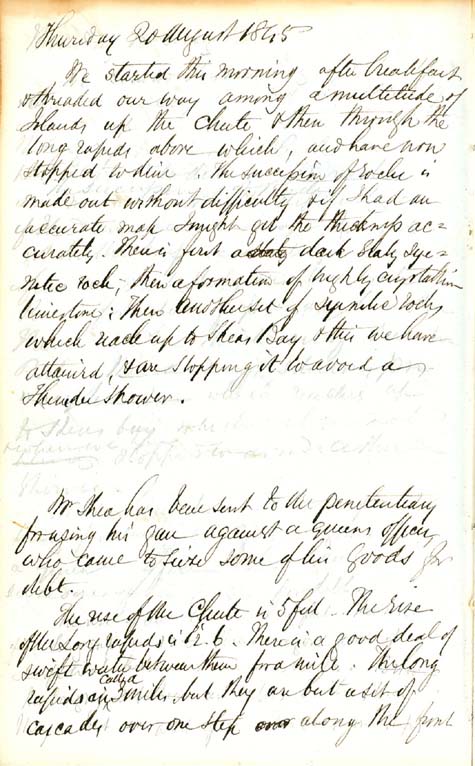 Thursday 20 August 1845
We started this morning after breakfast
& threaded our way among a multitude of
Islands up the Chute & then through the
long rapids above which, and have now
stopped to dine. The succession of rocks is
made out without difficulty & if I had an
accurate map I might get the thickness ac=
curately. There is first a slaty dark slaty Sye=
nitic rock; then a formation of highly crystalline
limestone; Then another set of syenitic rocks
which reach up to Sheas Bay & this we have
attained, & are stopping it to avoid a
Thunder Shower.
Mr Shea has been sent to the penitentiary
for using his gun against a queens officer
who came to seize some of his goods for
debt.
The rise of the Chute is 5 feet. The rise
of the Long rapids is 2.6. There is a good deal of
swift water between them for a mile. The long
rapids are called 3 miles but they are but a set of
cascades over one step over along the front